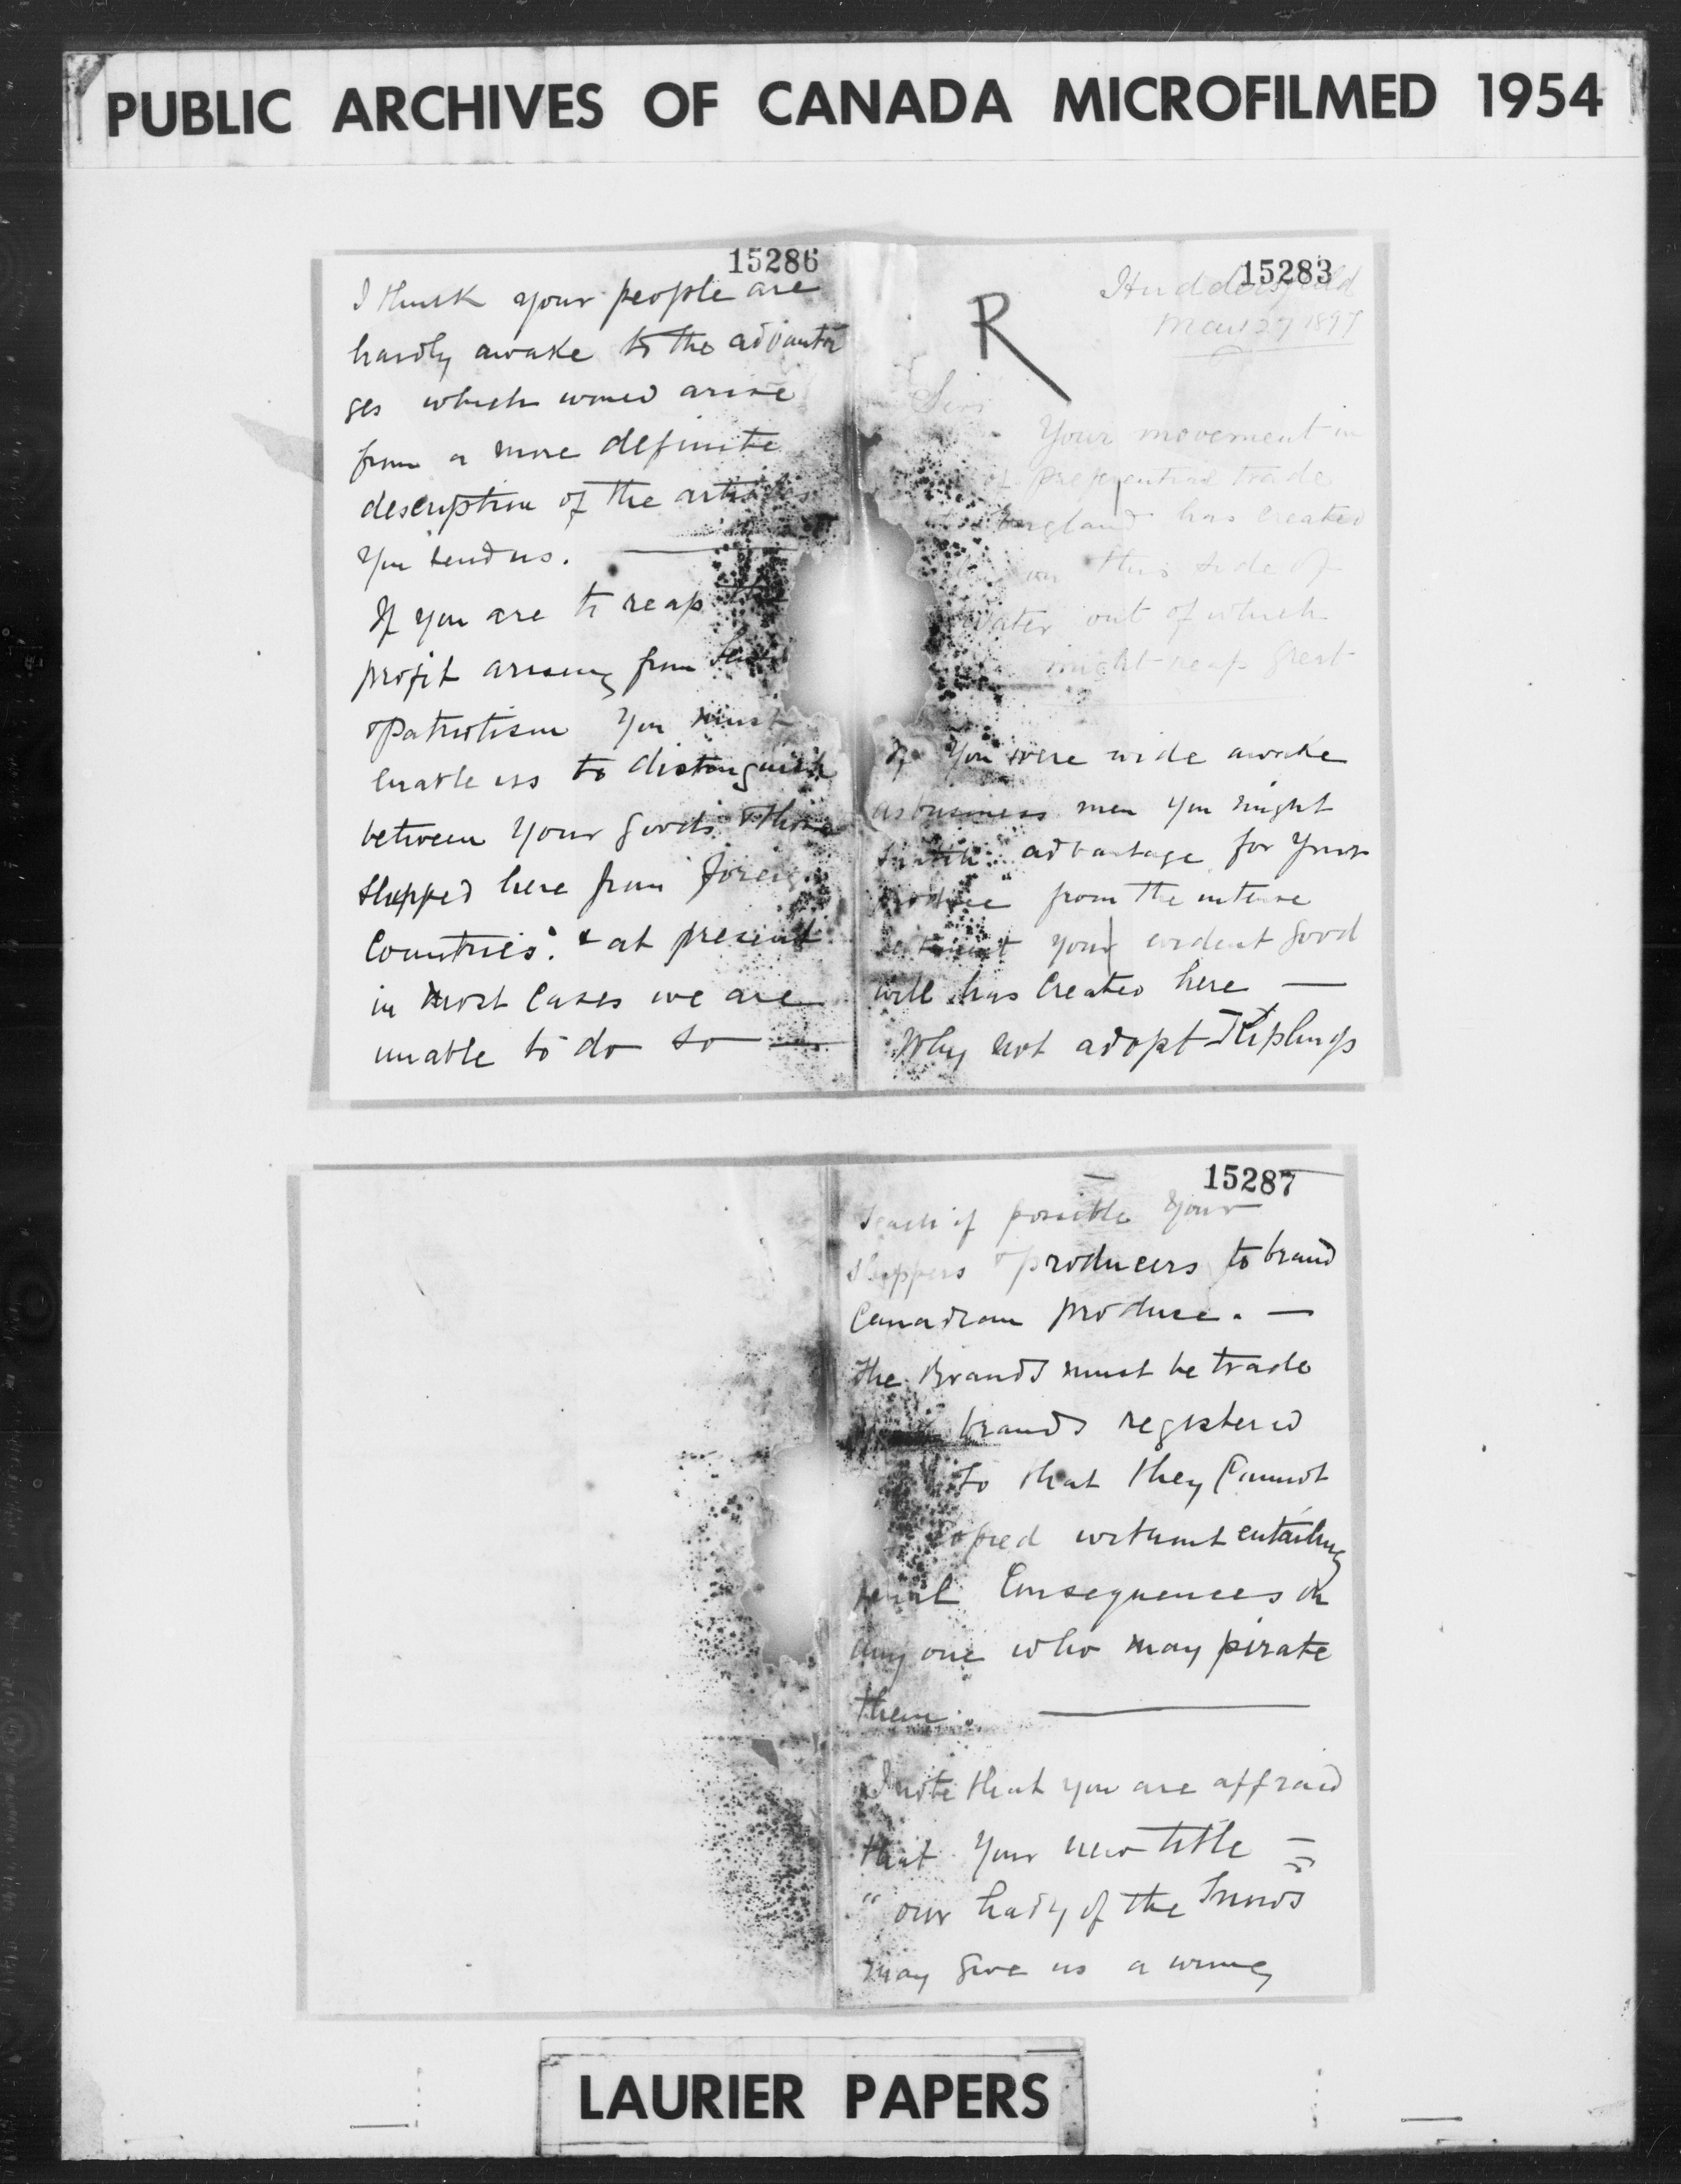 PUBLIC ARCHIVES OF CANADA MICROFILMED 1954
15286
I think your people are
hardly awake to the advanta
ges which would arise
from a more definite
description of the articles
you send us.
If you are to reap the
profit arising from
& patriotism you must
enable us to distinguish
between your goods & those
shipped here from foreign
Countries. & at present
in most cases we are
unable to do so —
15283
Huddersfield
1897
R
Sir
Your movement in
of preferential trade
England has created
on this side of
water out of which
might reap great
If you were wide awake
as business men you might
advantage for your
produce from the intense
sentiment your evident good
will has created here —
Why not adopt Kiplings
15287
Teach if possible your
shippers & producers to brand
Canadian produce. —
The Brands must be trade
brands registered
so that they Cannot
copied without entailing
penal Consequences on
any one who may pirate
them.
I note that you are affraid
that your new title =
"our Lady of the Snows
may give us a wrong
LAURIER PAPERS